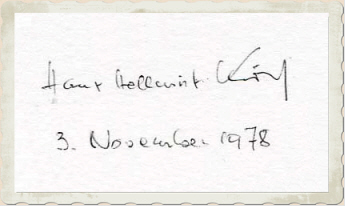 Hans Hellmut Kirst
3. November 1978